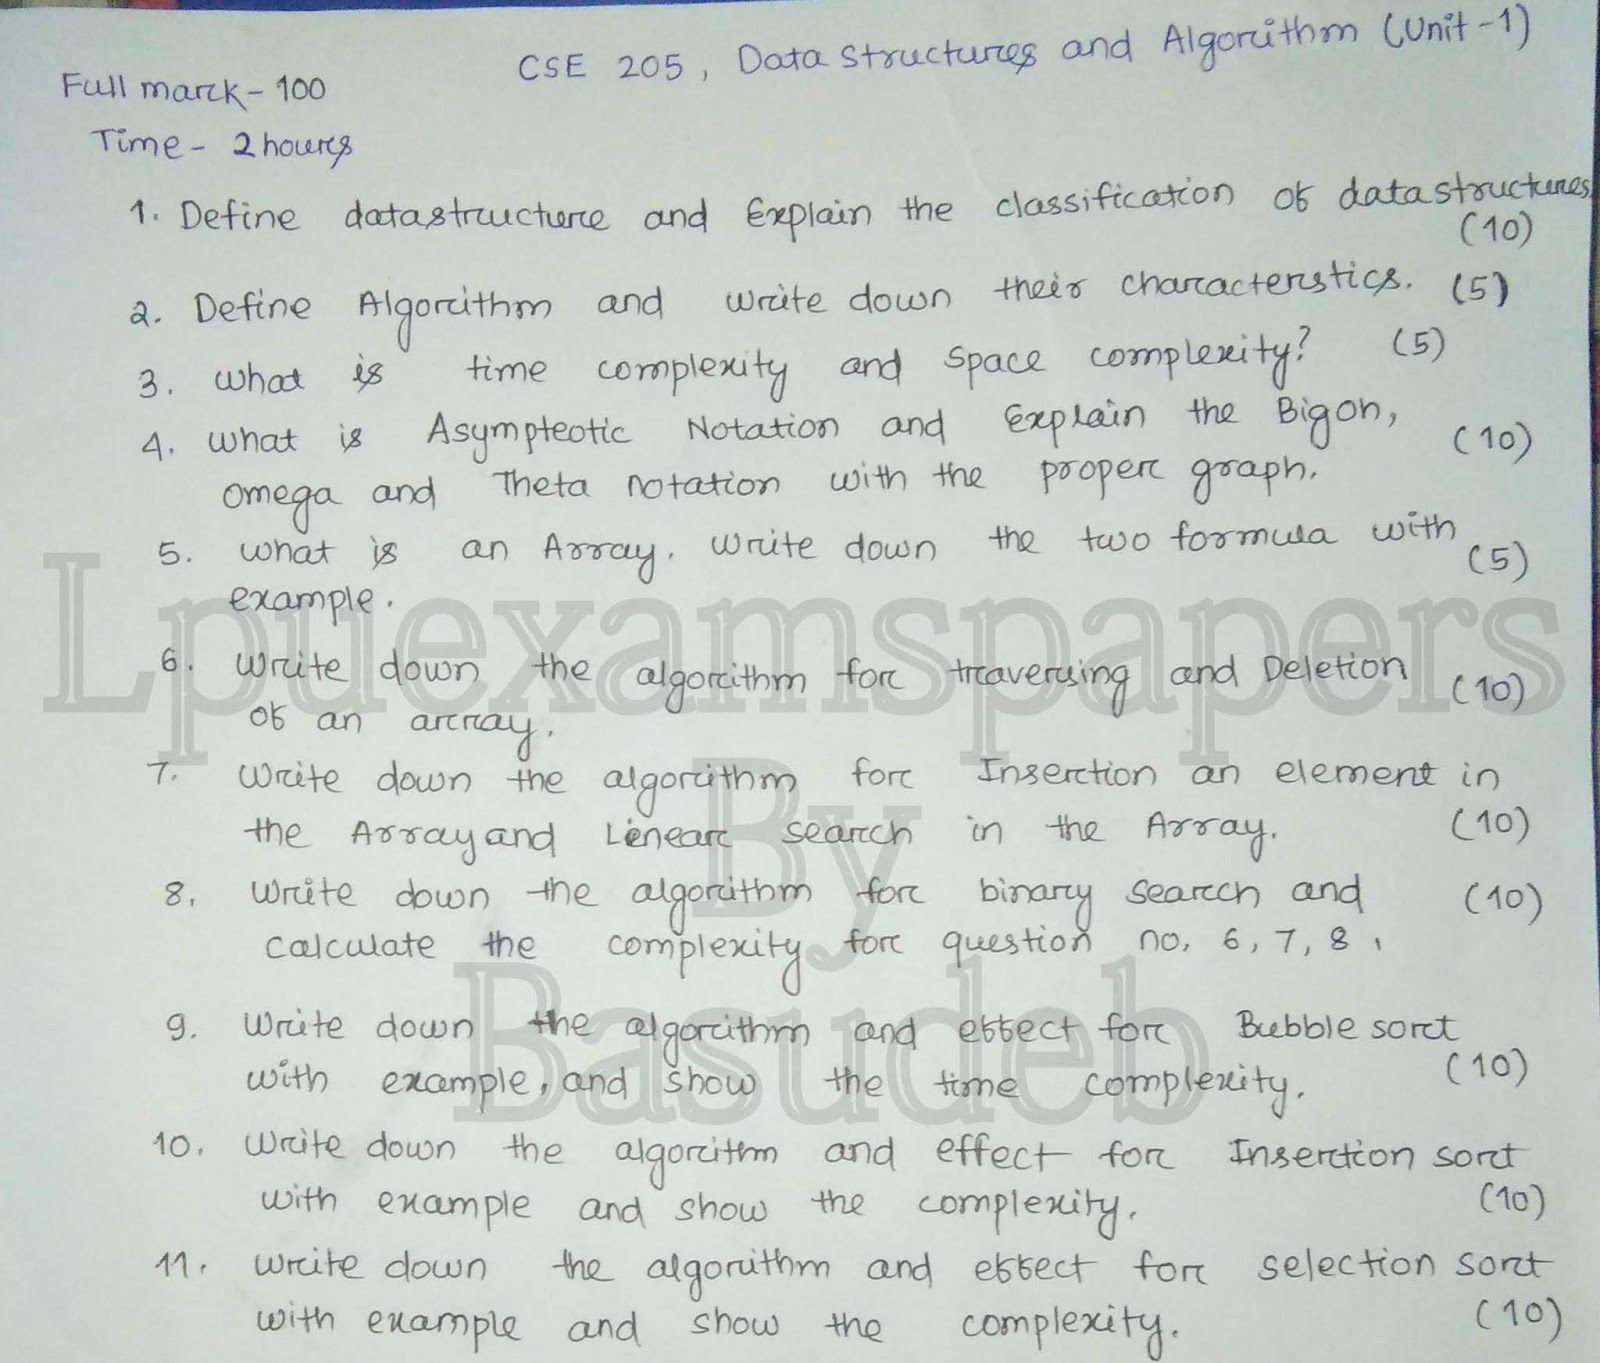 CSE 205, Data structures and Algorithm (Unit-1)
Full mark - 100
Time - 2 hours
1. Define datastructure and Explain the classification of datastructures
(10)
2. Define Algorithm and write down their characterstics. (5)
3. what is time complexity and space complexity? (5)
4. what is Asympteotic Notation and Explain the Bigoh, (10)
omega and Theta notation with the proper graph.
5. what is an Array. write down the two formula with (5)
example.
6. write down the algorithm for traversing and Deletion (10)
of an array.
7. write down the algorithm for Insertion an element in
the Array and Linear search in the Array. (10)
8. write down the algorithm for binary search and (10)
calculate the complexity for question no. 6, 7, 8.
9. write down the algorithm and effect for Bubble sort
with example, and show the time complexity. (10)
10. write down the algorithm and effect for Insertion sort
with example and show the complexity. (10)
11. write down the algorithm and effect for selection sort
with example and show the complexity. (10)
Lpuexamspapers
By
Basudeb